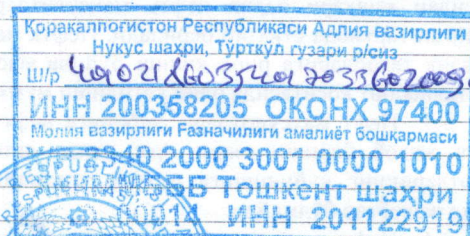 Қорақалпоғистон Республикаси Адлия вазирлиги
Нукус шаҳри, Тўрткўл гузари р/сиз
Ш/р
ИНН 200358205 ОКОНХ 97400
Молия вазирлиги Ғазначилиги амалиёт бошқармаси
2000 3001 0000 1010
ББ Тошкент шаҳри
00014 ИНН 201122919